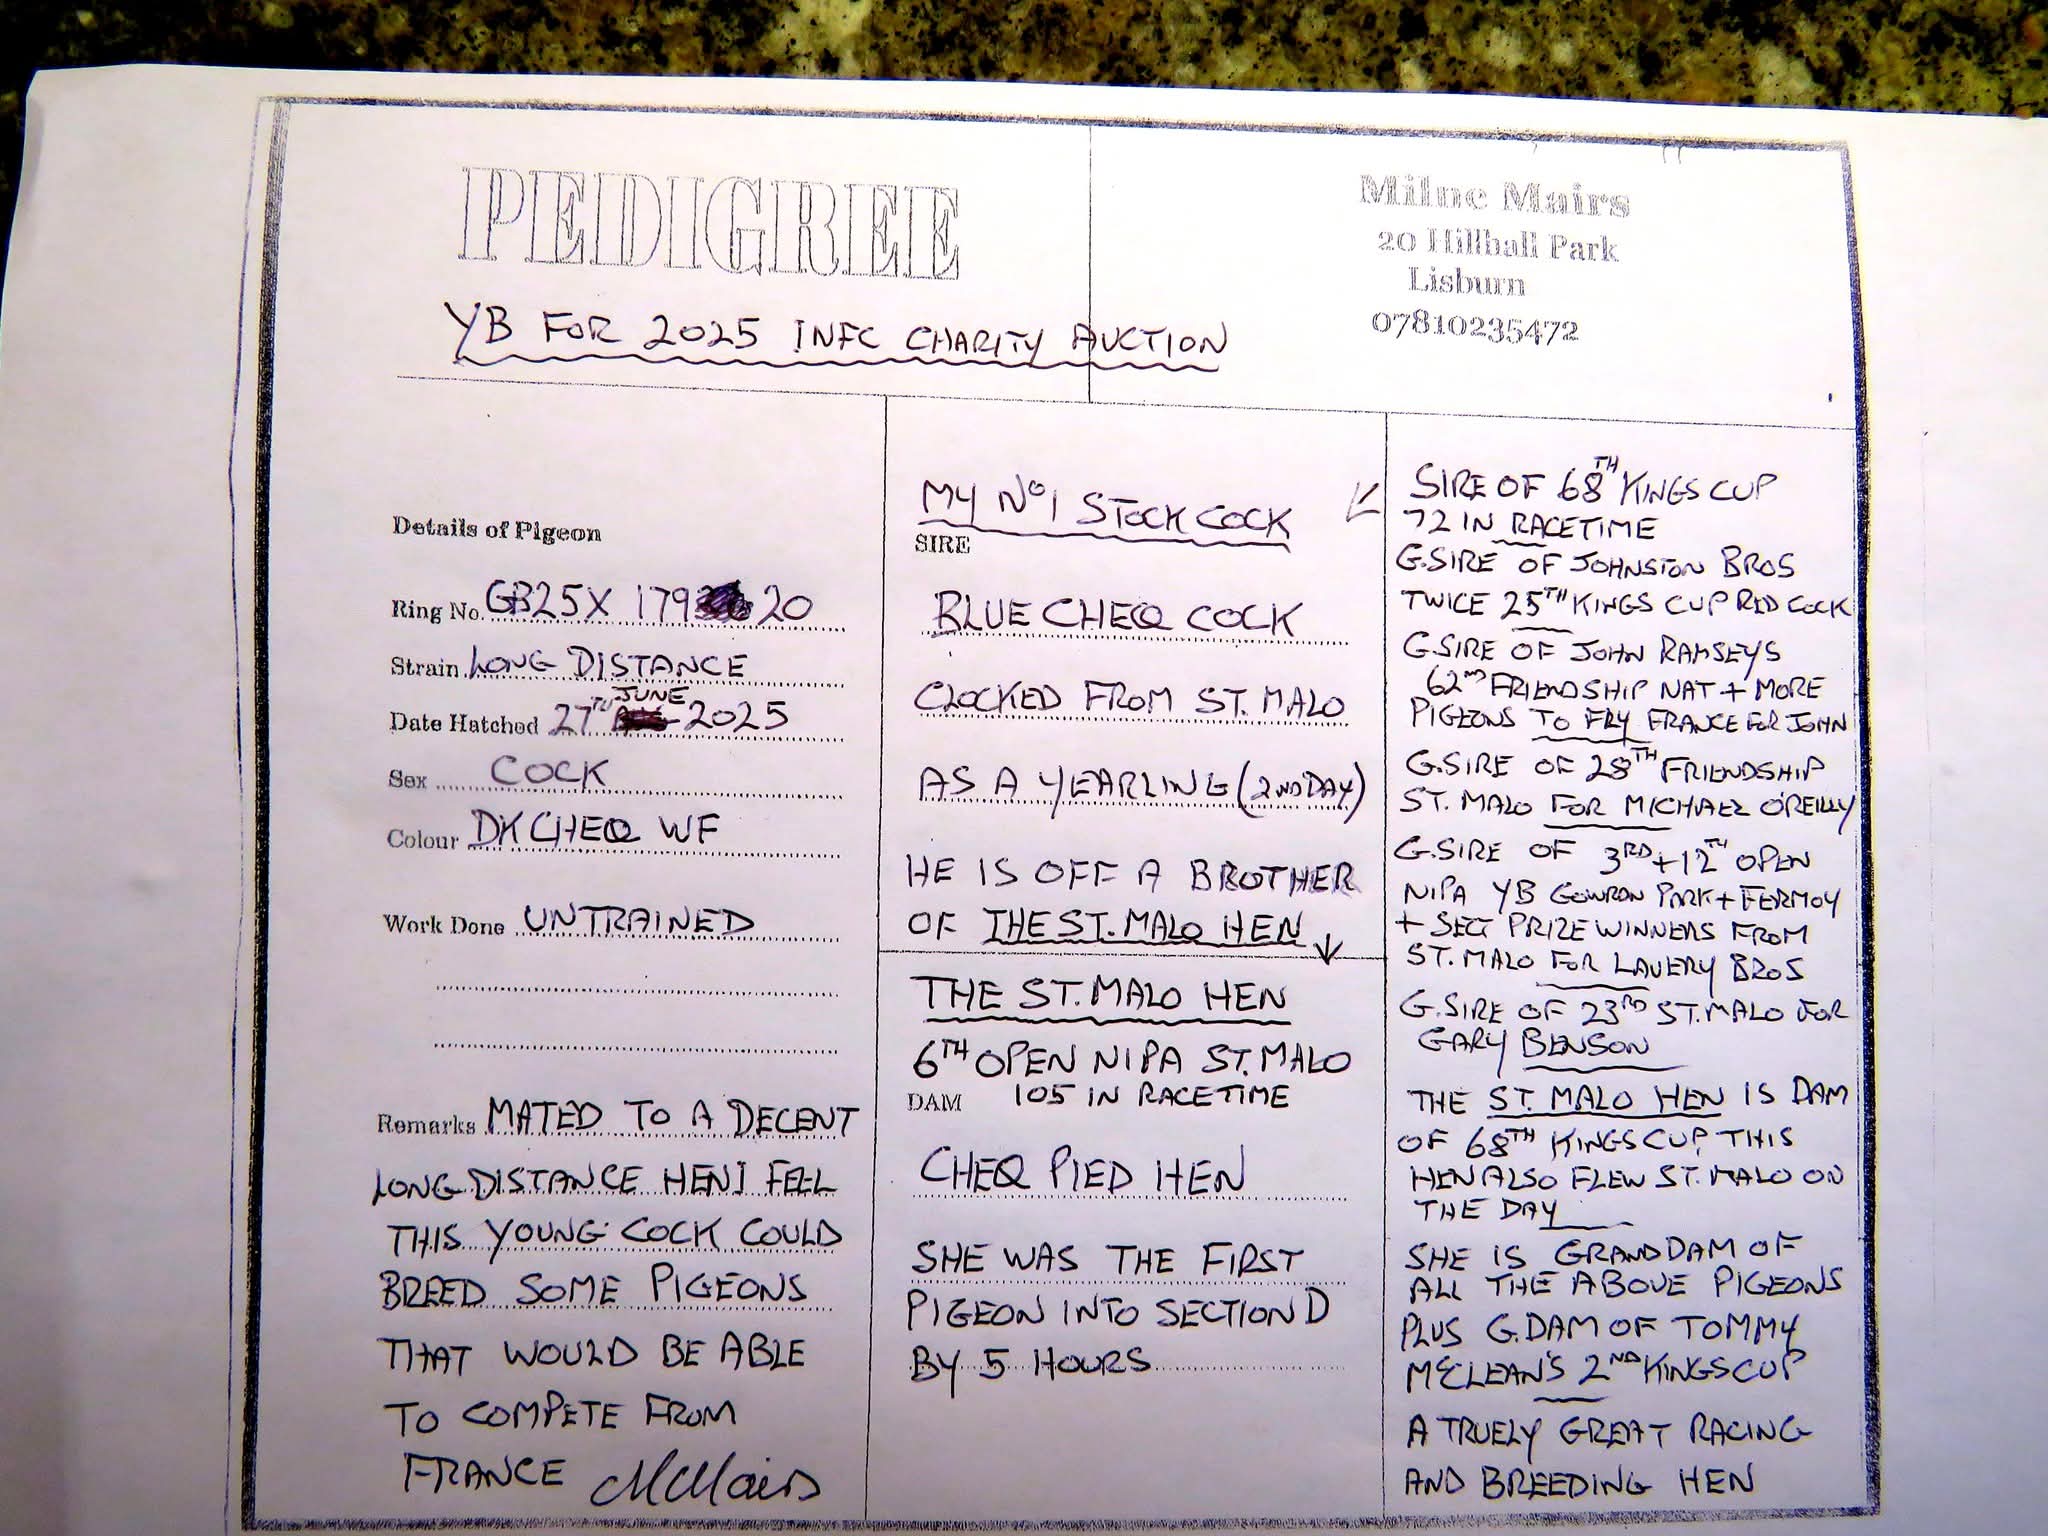 PEDIGREE
YB FOR 2025 INFC CHARITY AUCTION
Milne Mairs
20 Hillhall Park
Lisburn
07810235472
Details of Pigeon
Ring No. GB25X 179 20
Strain LONG DISTANCE
JUNE
Date Hatched 27TH 2025
Sex COCK
Colour DK CHEQ WF
Work Done UNTRAINED
Remarks MATED TO A DECENT
LONG DISTANCE HEN I FEEL
THIS YOUNG COCK COULD
BREED SOME PIGEONS
THAT WOULD BE ABLE
TO COMPETE FROM
FRANCE MMairs
MY NO1 STOCK COCK
SIRE
BLUE CHEQ COCK
CLOCKED FROM ST. MALO
AS A YEARLING (2ND DAY)
HE IS OFF A BROTHER
OF THE ST. MALO HEN
THE ST. MALO HEN
6TH OPEN NIPA ST. MALO
DAM 105 IN RACETIME
CHEQ PIED HEN
SHE WAS THE FIRST
PIGEON INTO SECTION D
BY 5 HOURS
SIRE OF 68TH KINGS CUP
72 IN RACETIME
G.SIRE OF JOHNSTON BROS
TWICE 25TH KINGS CUP RED COCK
G.SIRE OF JOHN RAMSEYS
62ND FRIENDSHIP NAT + MORE
PIGEONS TO FLY FRANCE FOR JOHN
G.SIRE OF 28TH FRIENDSHIP
ST. MALO FOR MICHAEL O'REILLY
G.SIRE OF 3RD + 12TH OPEN
NIPA YB GOWRON PARK + FERMOY
+ SECT PRIZE WINNERS FROM
ST. MALO FOR LAVERY BROS
G.SIRE OF 23RD ST. MALO FOR
GARY BENSON
THE ST. MALO HEN IS DAM
OF 68TH KINGS CUP, THIS
HEN ALSO FLEW ST. MALO ON
THE DAY
SHE IS GRANDDAM OF
ALL THE ABOVE PIGEONS
PLUS G.DAM OF TOMMY
McCLEAN'S 2ND KINGS CUP
A TRUELY GREAT RACING
AND BREEDING HEN